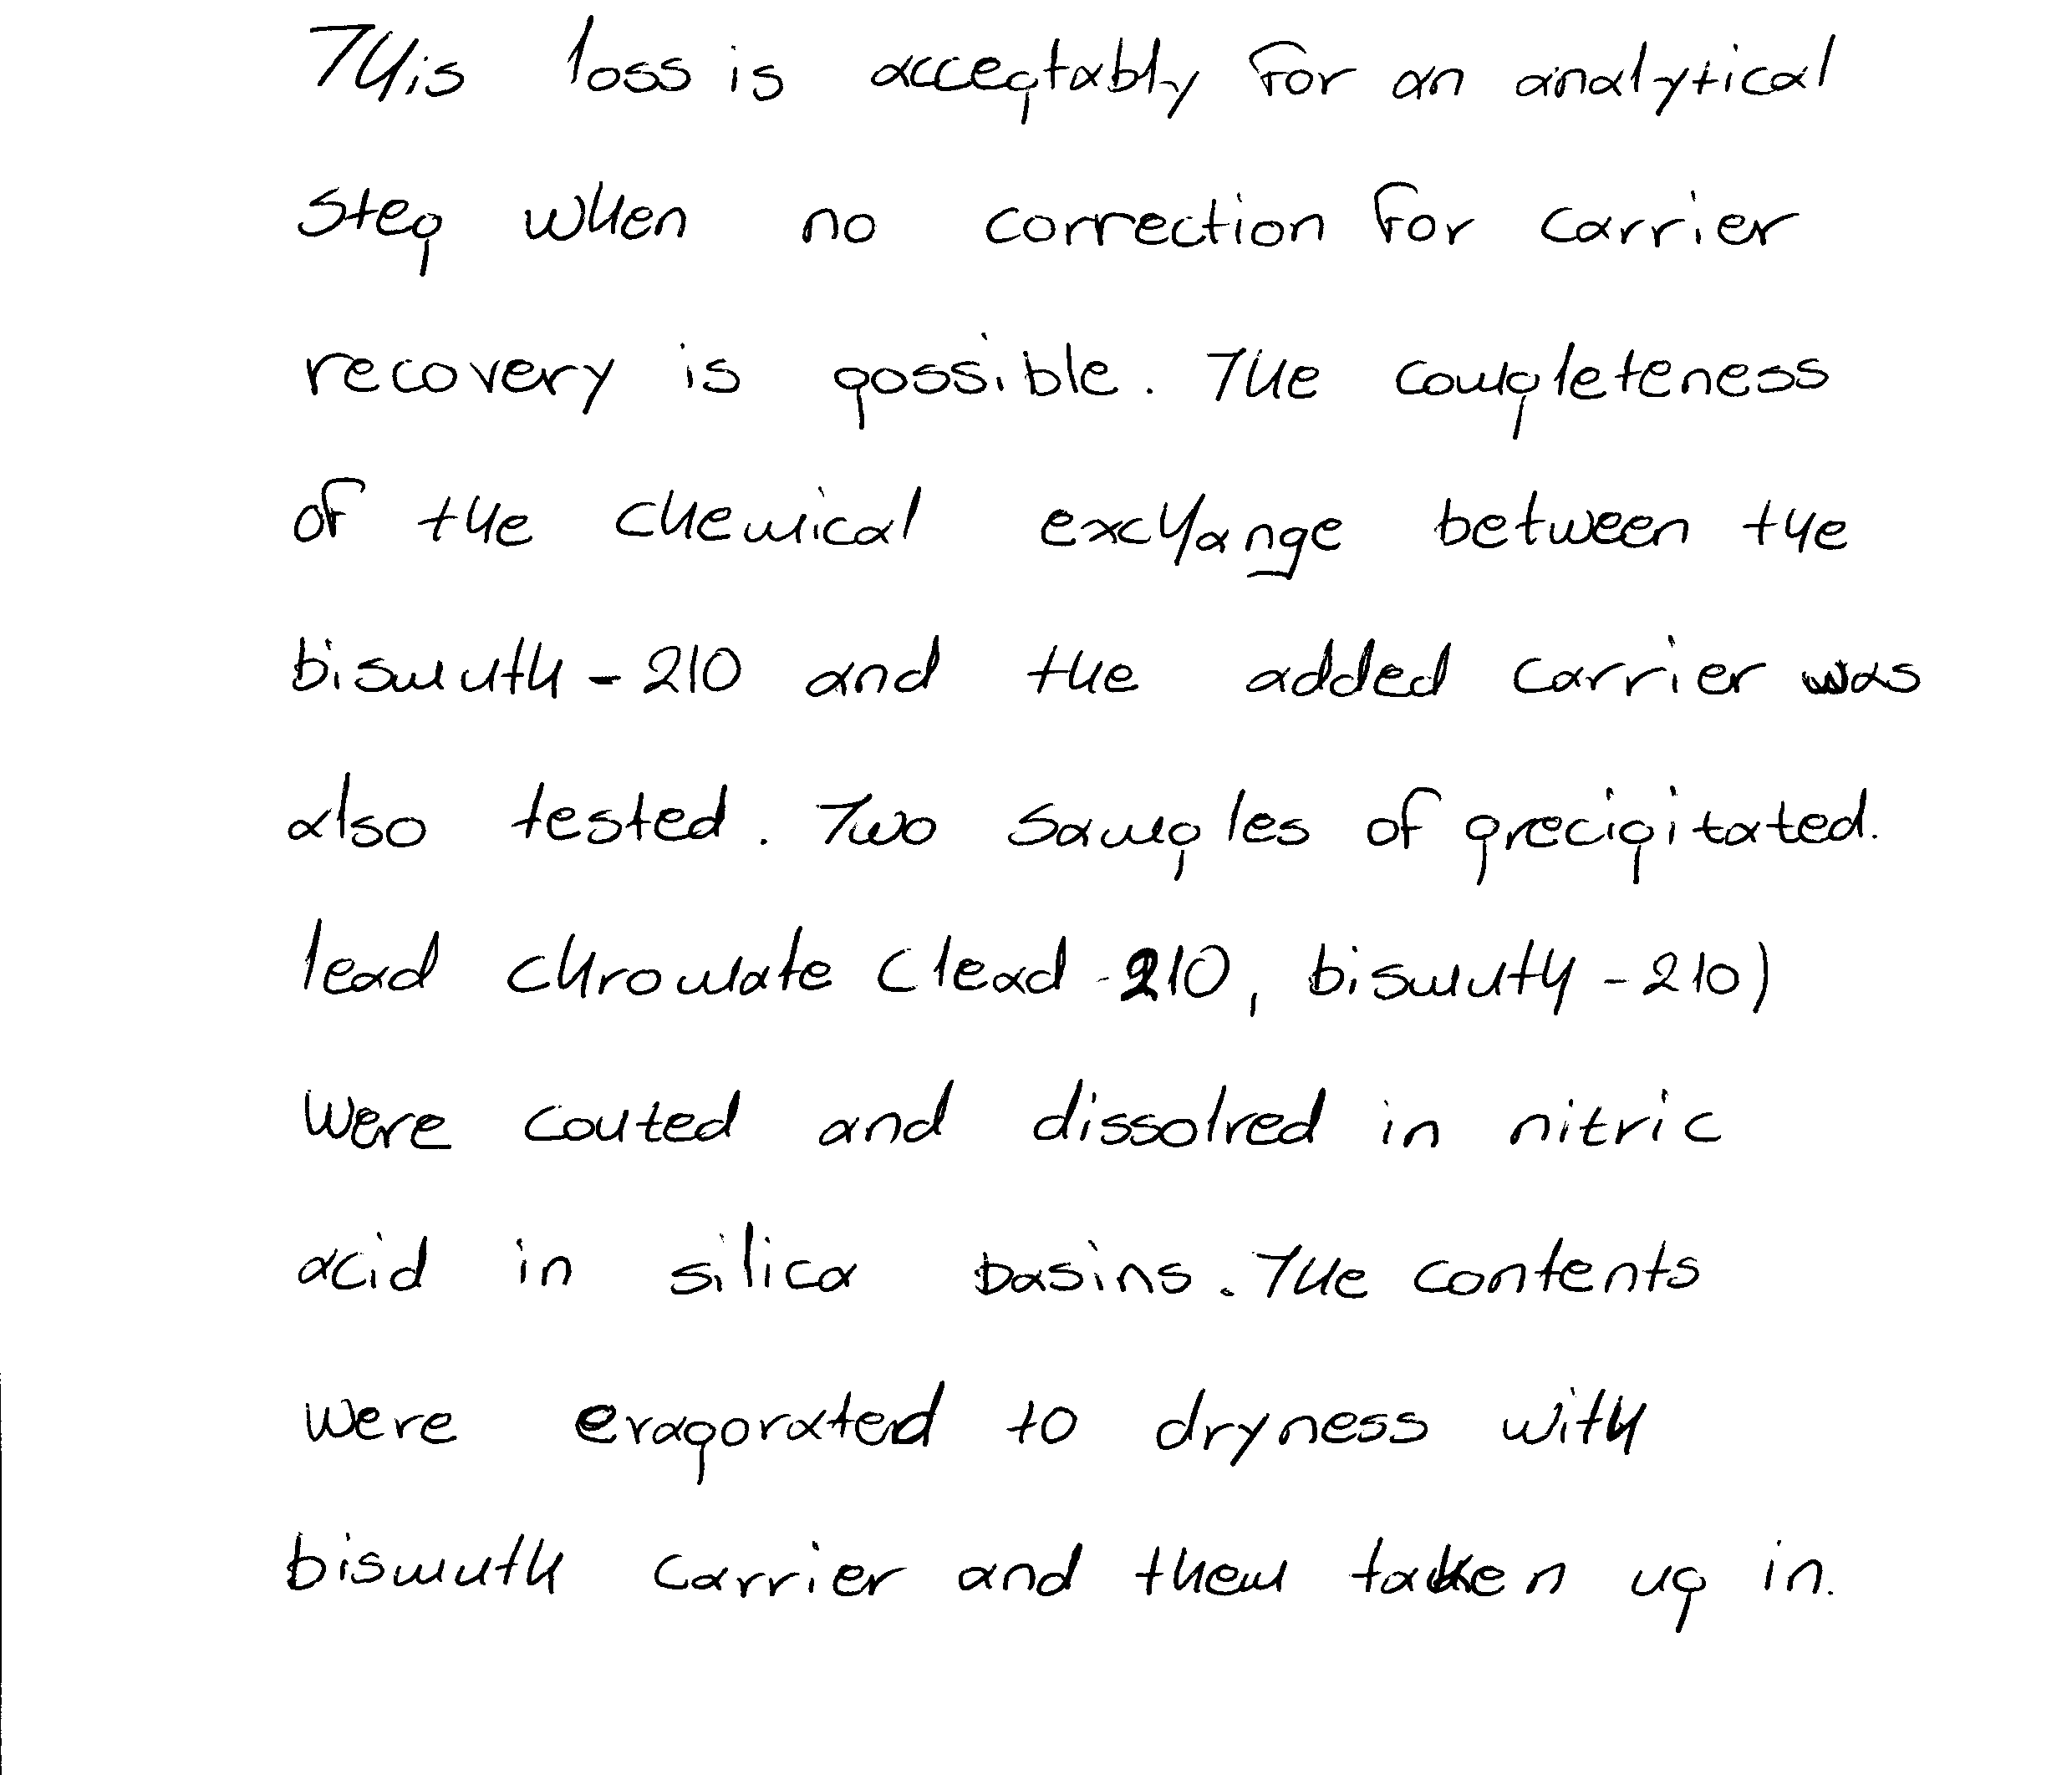 This loss is acceptably for an analytical
step when no correction for carrier
recovery is possible. The completeness
of the chemical exchange between the
bismuth - 210 and the added carrier was
also tested. Two samples of precipitated.
lead chromate (lead - 210, bismuth - 210)
were couted and dissolved in nitric
acid in silica basins. The contents
were evaporated to dryness with
bismuth carrier and them taken up in.